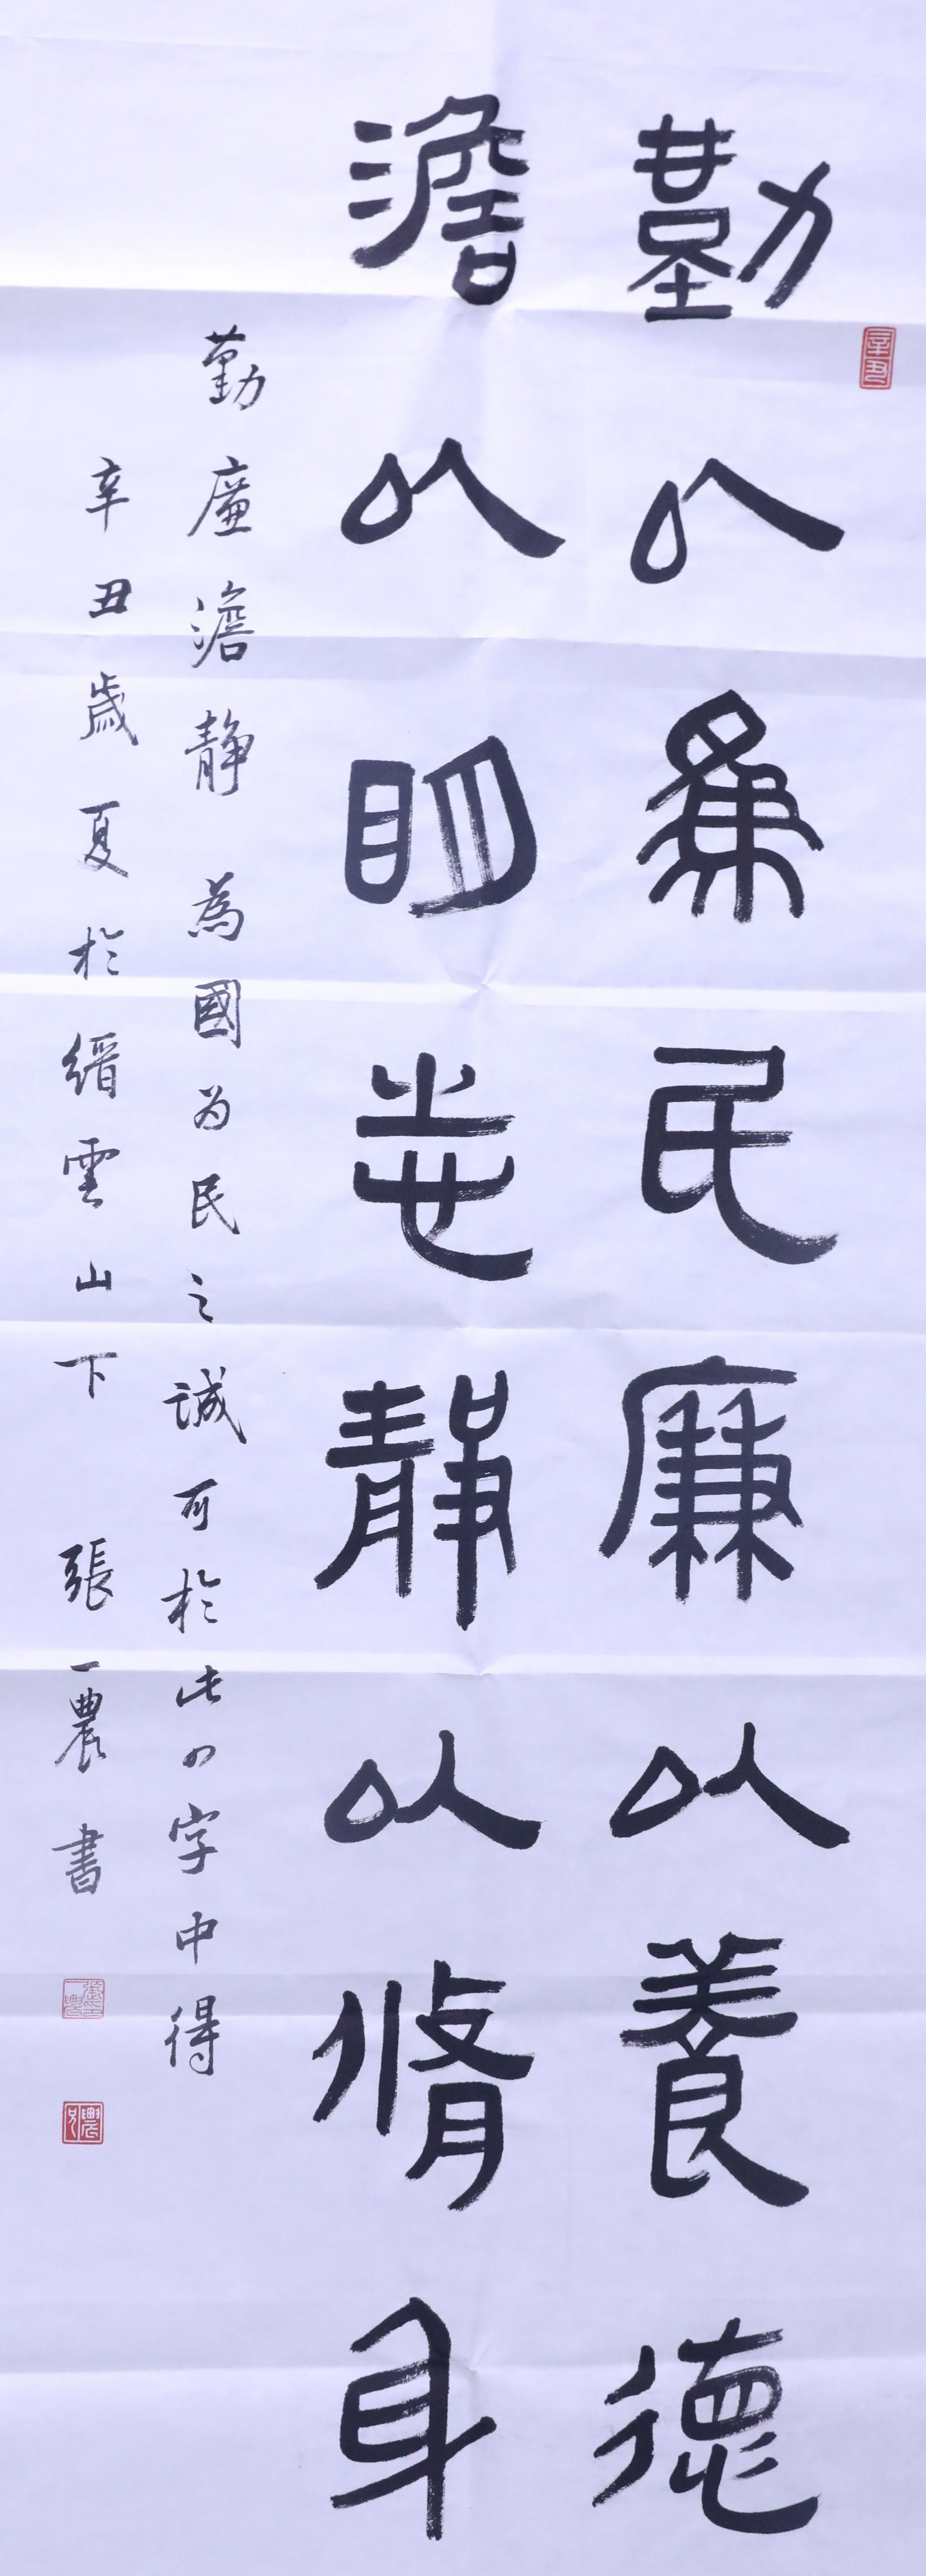 勤以為民廉以養德
澹以明志靜以脩身
勤廉澹靜為國为民之誠可於此四字中得
辛丑歲夏於縉雲山下張一農書